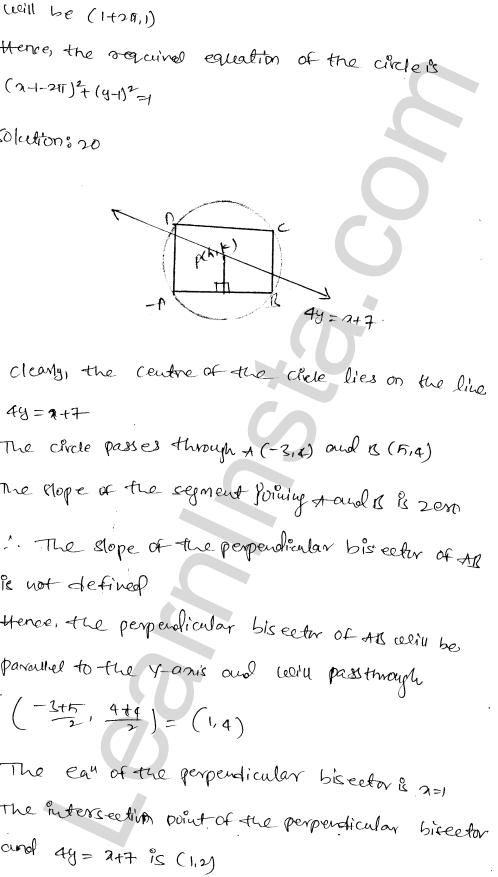 will be (1+2π,1)
Hence, the required equation of the circle is
(x-1-2π)²+(y-1)²=1
Solution: 20
D
C
P(h,k)
A
B
4y = x+7
Clearly, the centre of the circle lies on the line
4y = x+7
The circle passes through A (-3,4) and B (5,4)
The slope of the segment joining A and B is zero
∴ The slope of the perpendicular bisector of AB
is not defined
Hence, the perpendicular bisector of AB will be
parallel to the y-axis and will pass through
(-3+5/2, 4+4/2) = (1,4)
The eqⁿ of the perpendicular bisector is x=1
The intersection point of the perpendicular bisector
and 4y = x+7 is (1,2)
LearnInsta.com